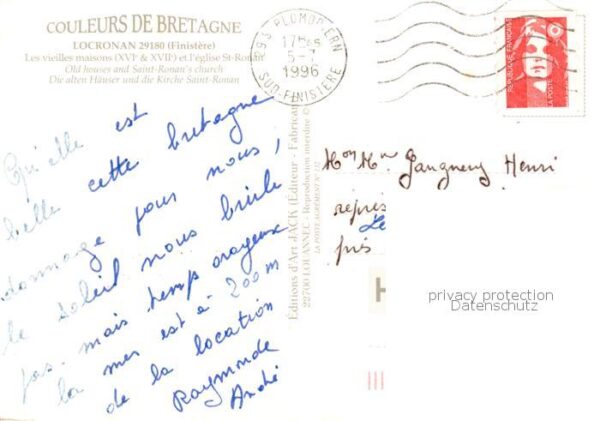 COULEURS DE BRETAGNE
LOCRONAN 29180 (Finistère)
Les vieilles maisons (XVIᵉ & XVIIᵉ) et l'église St-Ronan
Old houses and Saint-Ronan's church
Die alten Häuser und die Kirche Saint-Ronan
Qu'elle est
belle cette bretagne
dommage pour nous,
le soleil nous brûle
pas. mais temps orageux
la mer est à 200m
de la location
Raymonde
André
Editions d'Art JACK (Editeur - Fabricant)
22700 LOUANNEC - Reproduction interdite ©
293 PLOMODIERN
17H
5-7
1996
SUD-FINISTERE
REPUBLIQUE FRANÇAISE
LA POSTE
Mon Mr Henri
repres
Le
près
H
privacy protection
Datenschutz